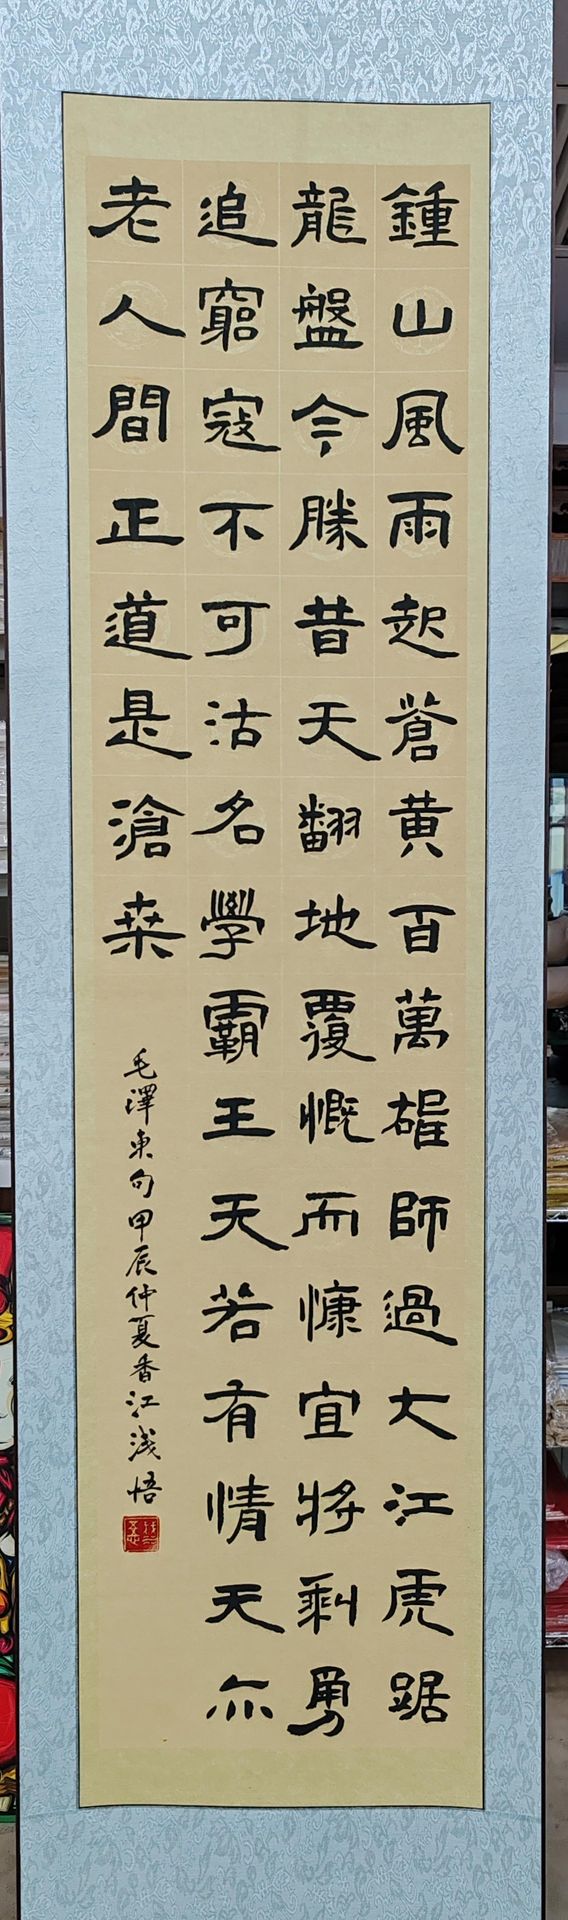 鍾山風雨起蒼黄百萬雄師過大江虎踞
龍盤今勝昔天翻地覆慨而慷宜將剩勇
追窮寇不可沽名學霸王天若有情天亦
老人間正道是滄桑
毛澤東句甲辰仲夏香江浅悟